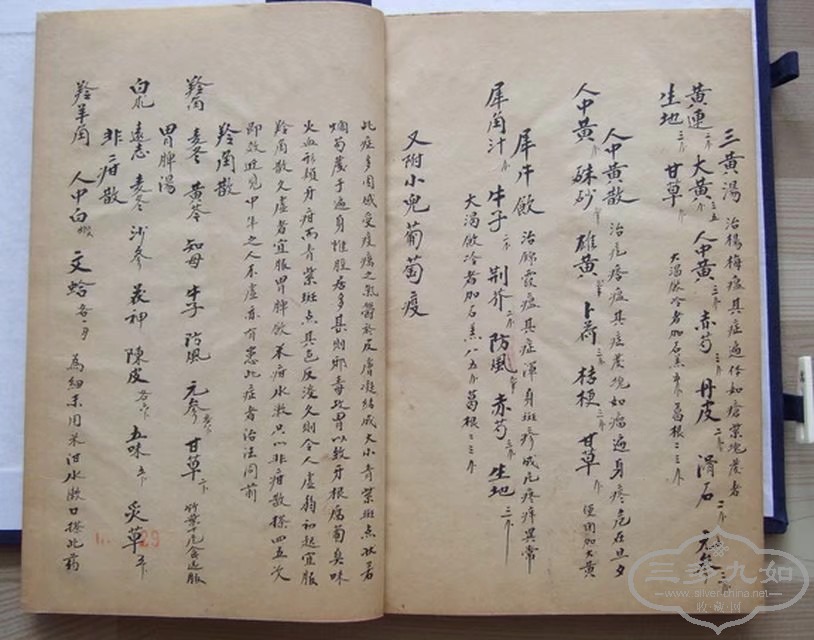 三黄汤 治楊梅瘟其症遍体如瘡紫塊發者
黄連 大黄 人中黄 赤芍 丹皮 滑石 元参
生地 甘草 大渴飲冷者加石羔 葛根
人中黄散 治疙瘩瘟其症發塊如瘤遍身疼危在旦夕
人中黄 硃砂 雄黄 卜荷 桔梗 甘草 便閉加大黄
犀牛飲 治綿霞瘟其症渾身斑疹或疙疼痒異常
犀角汁 牛子 荆芥 防風 赤芍 生地
大渴飲冷者加石羔 葛根
又附小兜葡萄疫
此症多因感受疫癘之氣鬱於皮膚凝結成大小青紫斑点狀若
葡萄發于遍身惟腿居多甚則邪毒攻胃以致牙根腐爛臭味
火血形類牙疳而青紫斑点其色反淡久則令人虚弱初起宜服
羚角散久虚者宜服胃脾飲米疳水漱口以非疳散搽四五次
即效近見中年之人不虚亦有患此症者治法同前
羚角散
羚角 麦冬 黄芩 知母 牛子 防風 元参 甘草 竹葉 食遠服
胃脾湯
白朮 遠志 麦冬 沙参 茯神 陳皮 五味 炙草
非疳散
羚羊角 人中白 文蛤 為細末用米泔水漱口搽此药
29
三多九如
www.silver-china.net
收·藏·网